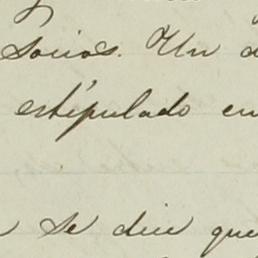 socios. Un
estipulado en
se dice que